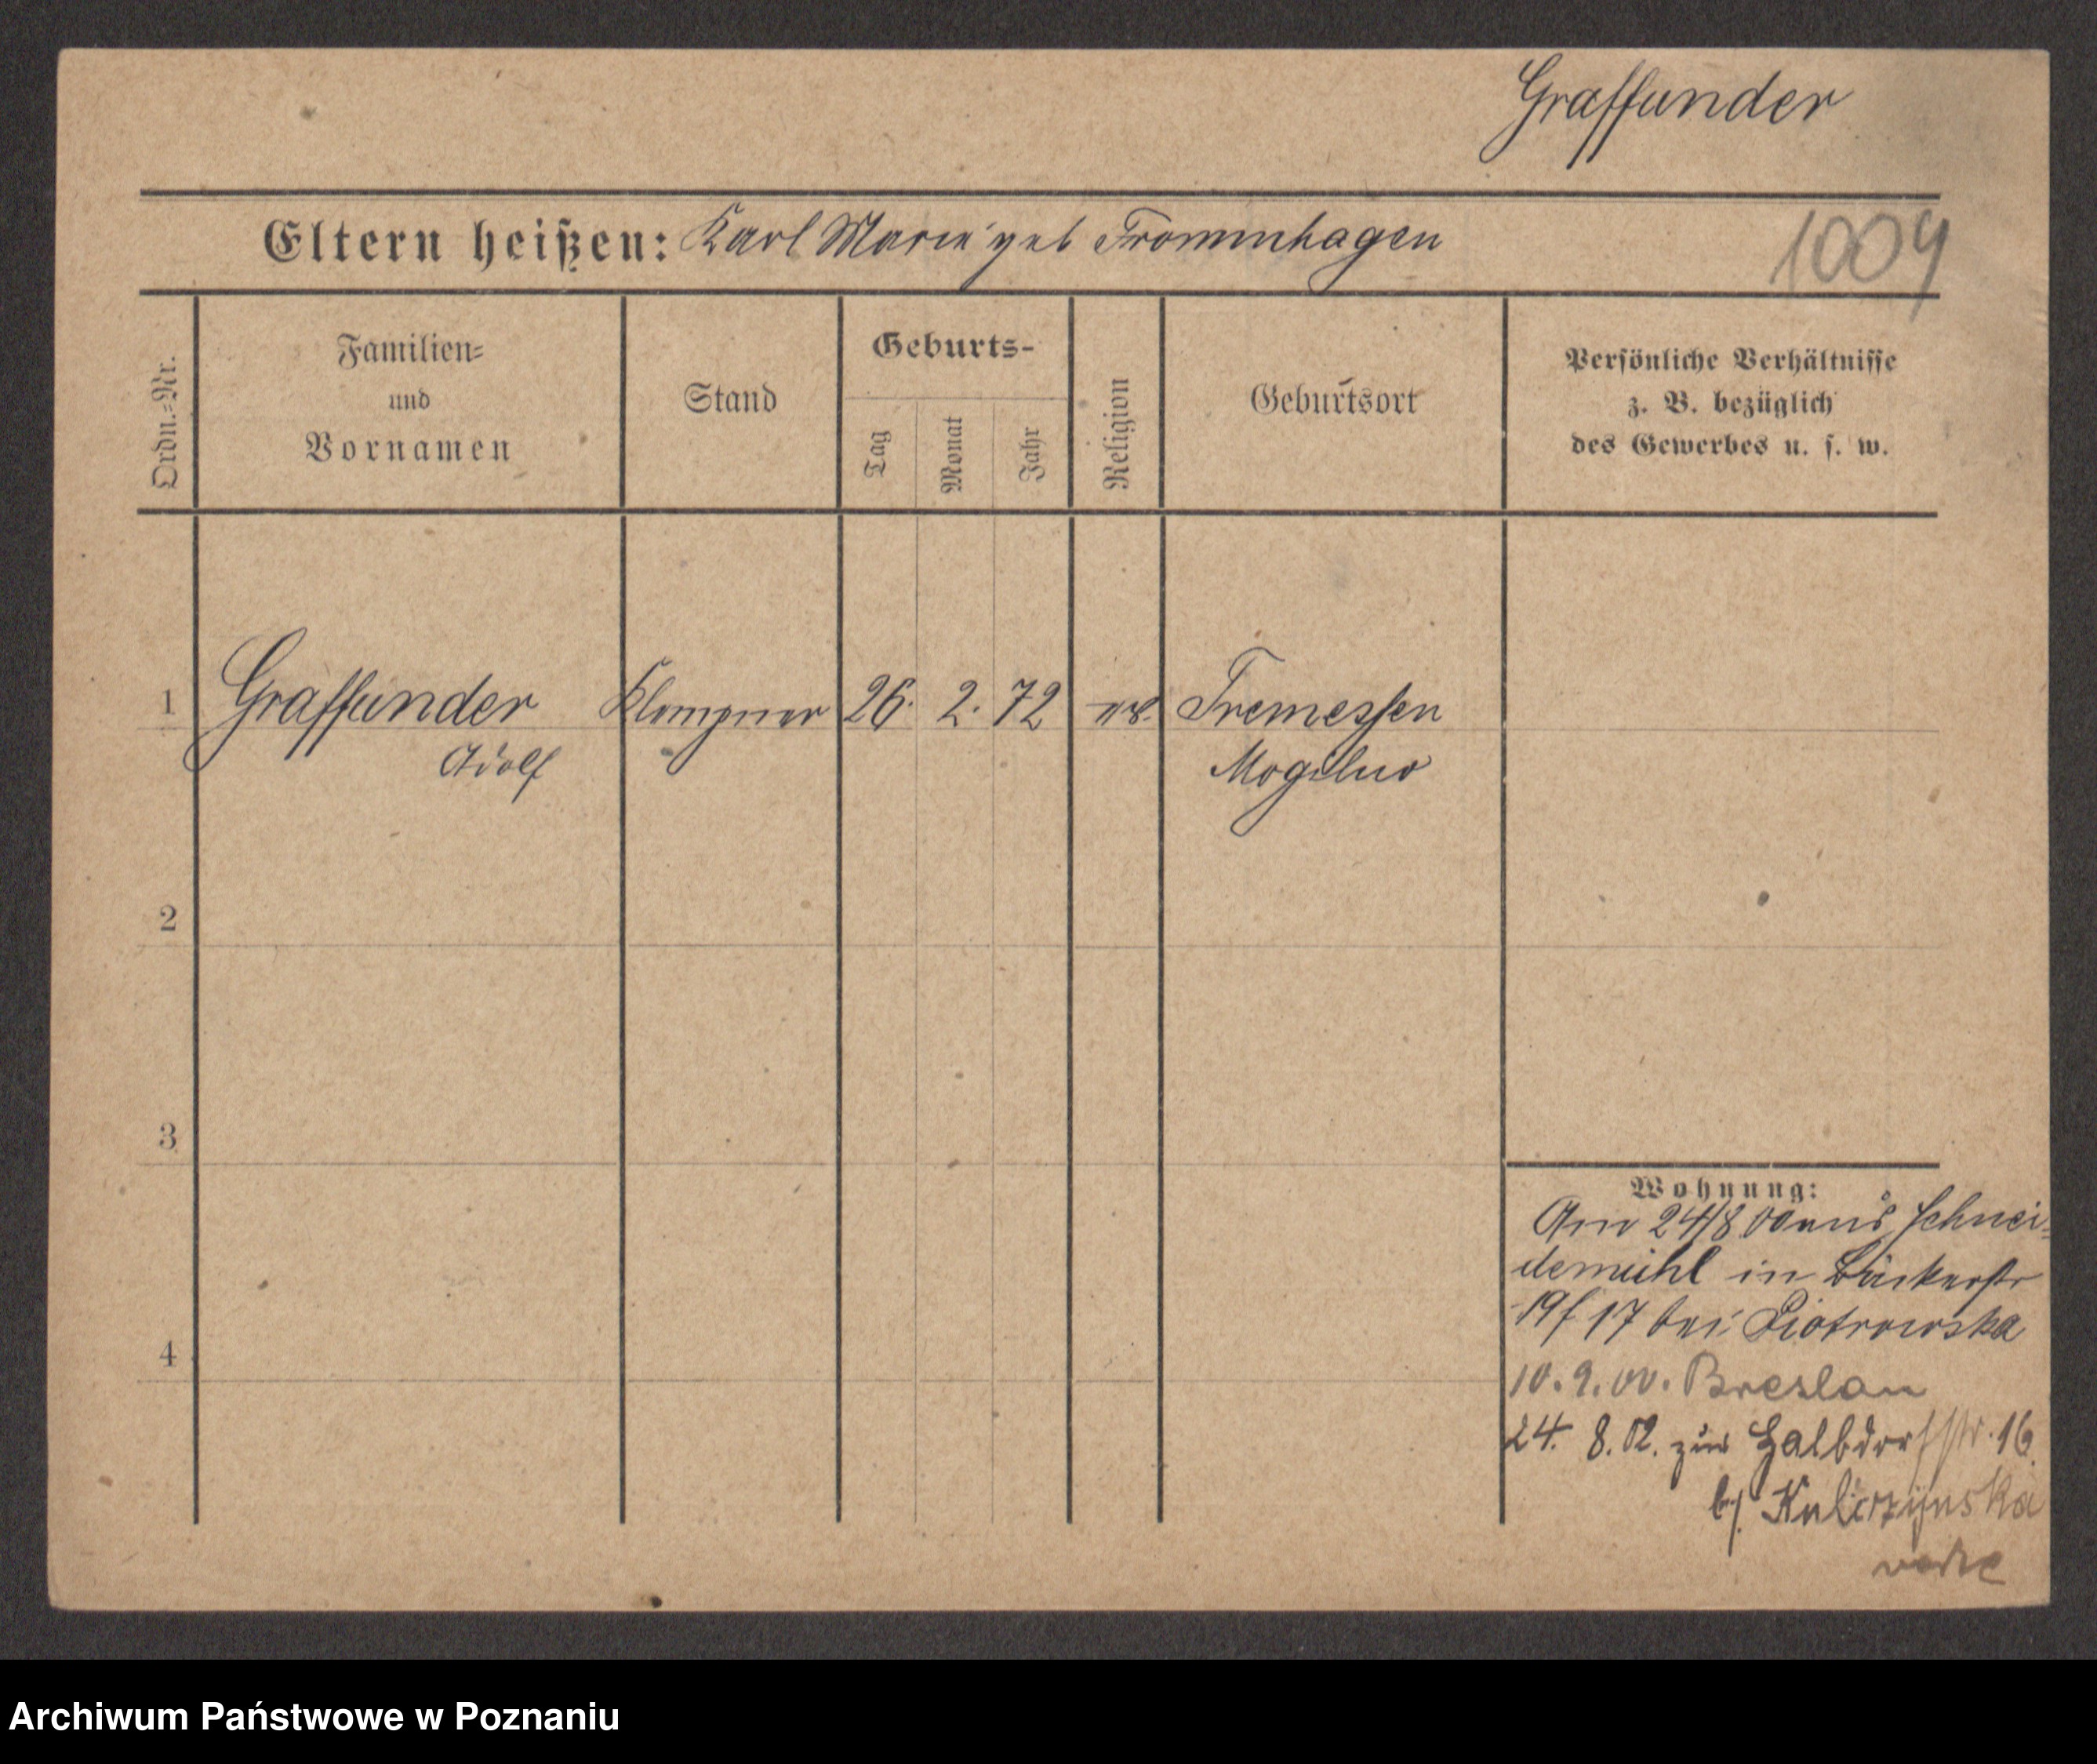 Graffunder
Eltern heißen: Karl Marie geb Frommhagen
1009
Ordn.=Nr.
Familien=
und
Vornamen
Stand
Geburts-
Tag
Monat
Jahr
Religion
Geburtsort
Persönliche Verhältnisse
z. B. bezüglich
des Gewerbes u. s. w.
1 Graffunder Klempner 26. 2. 72 ev. Tremessen
Adolf Mogilno
2
3
4
Wohnung:
Am 24/8 00 aus Schnei-
demühl in Bäckerstr
19/17 bei Piotrowska
10. 9. 00. Breslau
24. 8. 02. zur Halbdorfstr. 16
b/
Archiwum Państwowe w Poznaniu